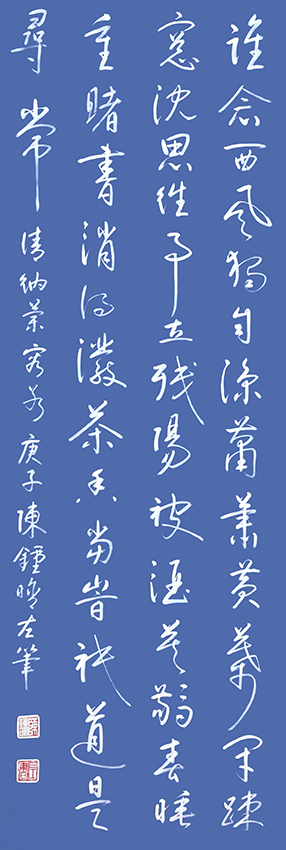 誰念西風獨自涼蕭蕭黃葉閉疎
窗沈思往事立殘陽被酒莫驚春睡
重賭書消得潑茶香當時祇道是
尋常 清納蘭容若 庚子陳鍾 左筆